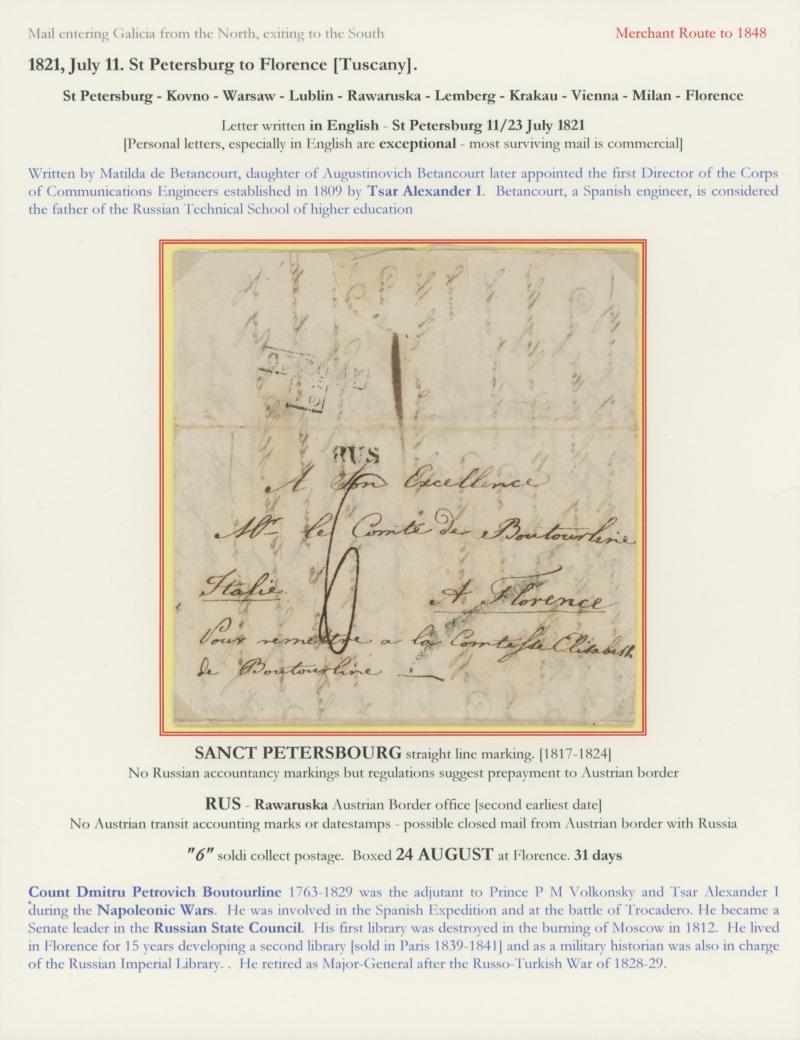 Mail entering Galicia from the North, exiting to the South
Merchant Route to 1848
1821, July 11. St Petersburg to Florence [Tuscany].
St Petersburg - Kovno - Warsaw - Lublin - Rawaruska - Lemberg - Krakau - Vienna - Milan - Florence
Letter written in English - St Petersburg 11/23 July 1821
[Personal letters, especially in English are exceptional - most surviving mail is commercial]
Written by Matilda de Betancourt, daughter of Augustinovich Betancourt later appointed the first Director of the Corps
of Communications Engineers established in 1809 by Tsar Alexander I. Betancourt, a Spanish engineer, is considered
the father of the Russian Technical School of higher education
RUS
A Son Excellence
Mr le Comte de Boutourline
Italie
A Florence
6
Pour remettre a la Comtesse Elisabeth
de Boutourline
SANCT PETERSBOURG straight line marking. [1817-1824]
No Russian accountancy markings but regulations suggest prepayment to Austrian border
RUS - Rawaruska Austrian Border office [second earliest date]
No Austrian transit accounting marks or datestamps - possible closed mail from Austrian border with Russia
"6" soldi collect postage. Boxed 24 AUGUST at Florence. 31 days
Count Dmitru Petrovich Boutourline 1763-1829 was the adjutant to Prince P M Volkonsky and Tsar Alexander I
during the Napoleonic Wars. He was involved in the Spanish Expedition and at the battle of Trocadero. He became a
Senate leader in the Russian State Council. His first library was destroyed in the burning of Moscow in 1812. He lived
in Florence for 15 years developing a second library [sold in Paris 1839-1841] and as a military historian was also in charge
of the Russian Imperial Library. . He retired as Major-General after the Russo-Turkish War of 1828-29.